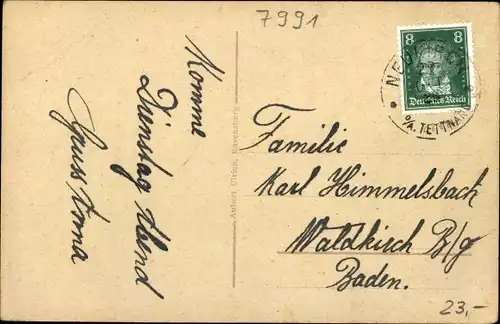 7991
Komme
Dienstag Abend
Gruss Anna
Aubert Ulrich, Ravensburg
8 8
Deutsches Reich
O/A. TETTNANG
Familie
Karl Himmelsbach
Waldkirch B/g
Baden.
23,-